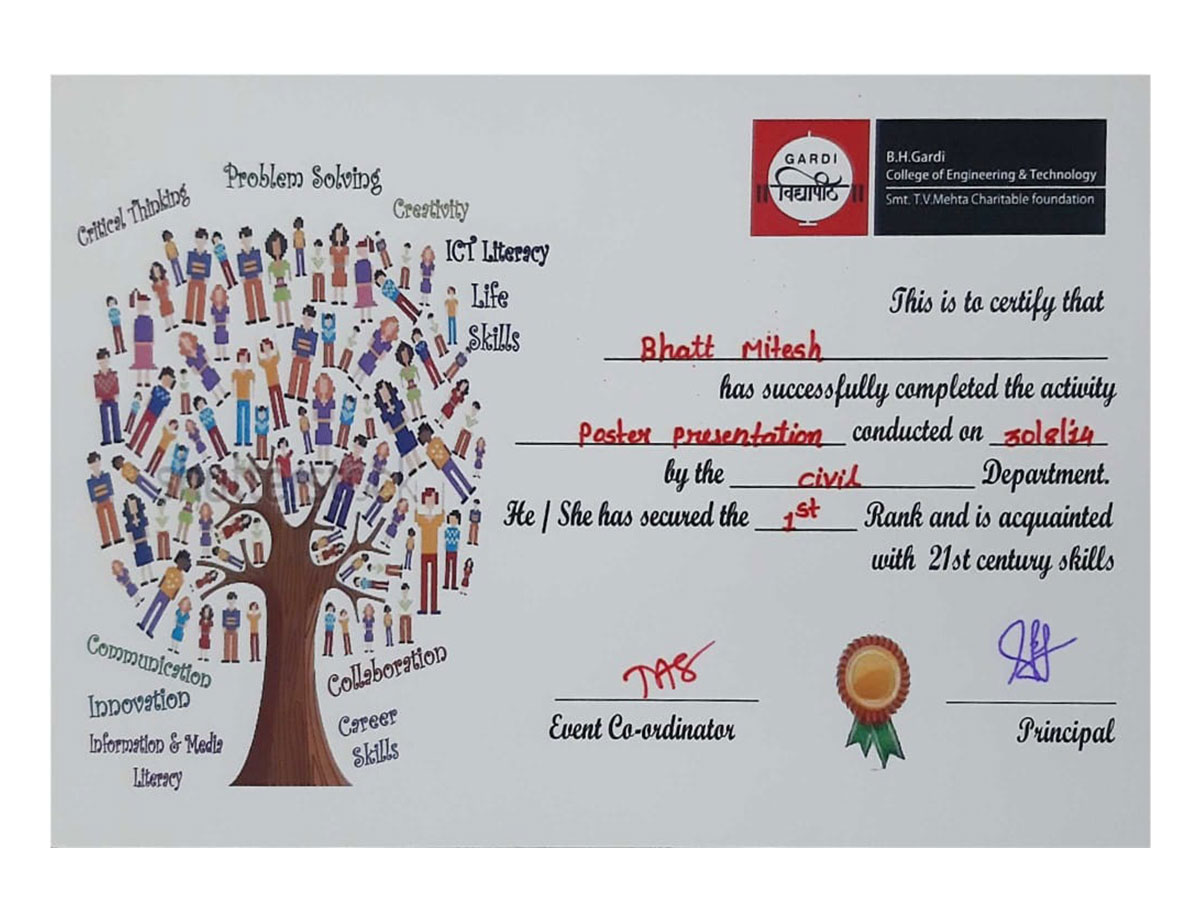 Problem Solving
Critical Thinking
Creativity
ICT Literacy
Life
Skills
Communication
Innovation
Information & Media
Literacy
Collaboration
Career
Skills
GARDI
विद्यापीठ
B.H.Gardi
College of Engineering & Technology
Smt. T.V.Mehta Charitable foundation
This is to certify that
Bhatt Mitesh
has successfully completed the activity
Poster presentation conducted on 30/8/14
by the civil Department.
He / She has secured the 1st Rank and is acquainted
with 21st century skills
Event Co-ordinator
Principal